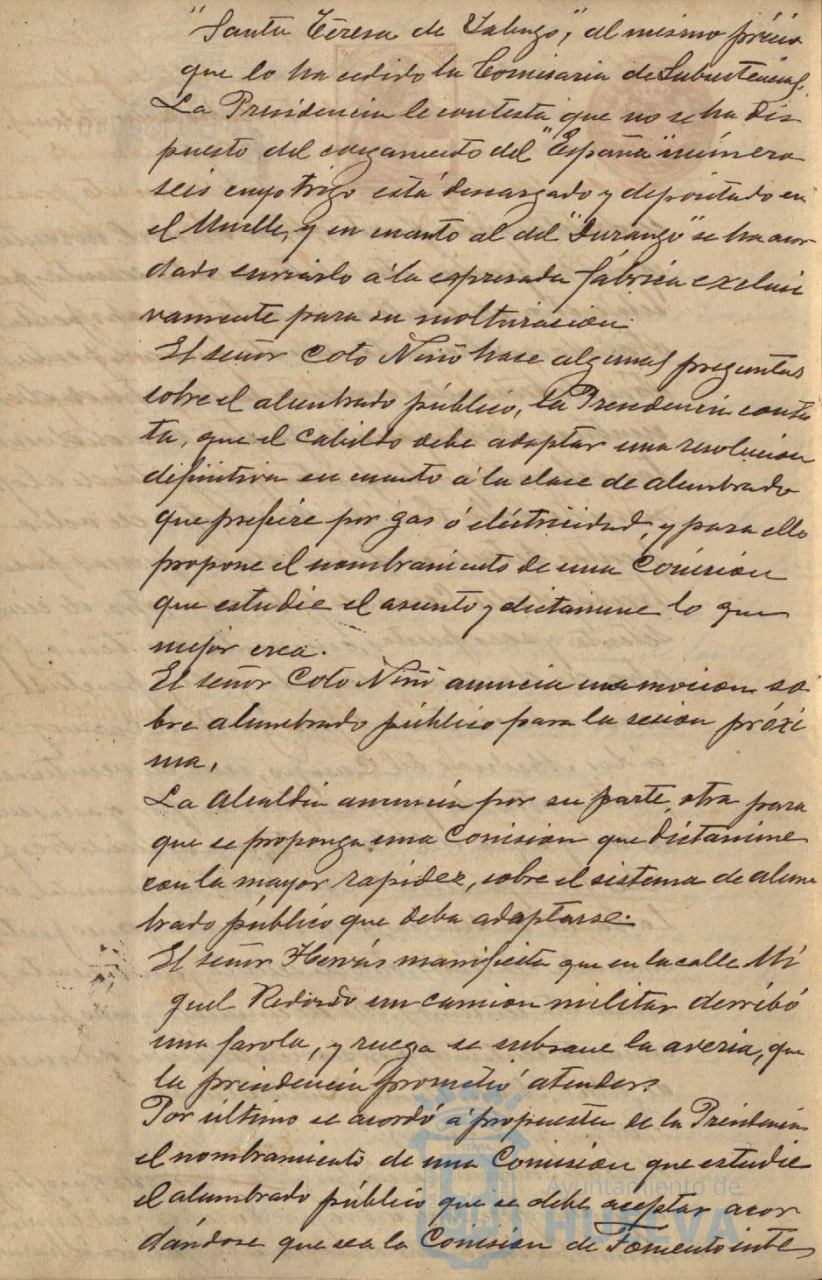 "Santa Teresa de Jabugo", al mismo précio
que lo ha cedido la Comisaria de Subsistencias.
La Presidencia le contesta que no se ha dis
puesto del cargamento del "España" número
seis cuyo trigo está descargado y depositado en
el Muelle, y en cuanto al del "Durango" se ha acor
dado enviarlo á la espresada fábrica exclusi
vamente para su molturacion.
El señor Coto Niño hase algunas preguntas
sobre el alumbrado público, la Presidencia contes
ta, que el Cabildo debe adoptar una resolucion
definitiva en cuanto á la clase de alumbrado
que prefiere por gas ó eléctricidad, y para ello
propone el nombramiento de una Comision
que estudie el asunto y dictamine lo que
mejor crea.
El señor Coto Niño anuncia una mocion so
bre alumbrado público para la sesion próxi
ma,
La Alcaldia anuncia por su parte, otra para
que se proponga una Comision que dictamine
con la mayor rapidez, sobre el sistema de alum
brado público que deba adaptarse.
El señor Hervás manifiesta que en la calle Mi
guel Redondo un camion militar derribó
una farola, y ruega se subsane la averia, que
la presidencia prometió atender.
Por último se acordó á propuesta de la Presidencia
el nombramiento de una Comision que estudie
el alumbrado público que se debe aceptar acor
dándose que sea la Comision de Fomento inte
Ayuntamiento de
HUELVA